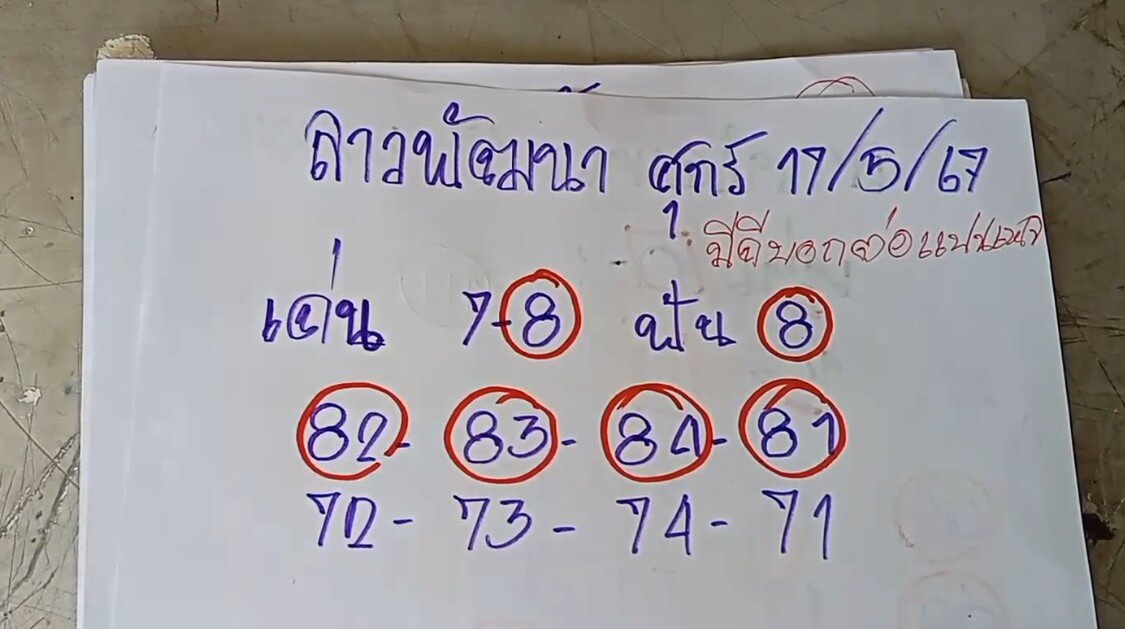 ลาวพัฒนา ศุกร์ 17/5/67
มีดีบอกต่อแบ่ง
เด่น 7-8 ฟัน 8
82- 83- 84- 81
72- 73- 74- 71